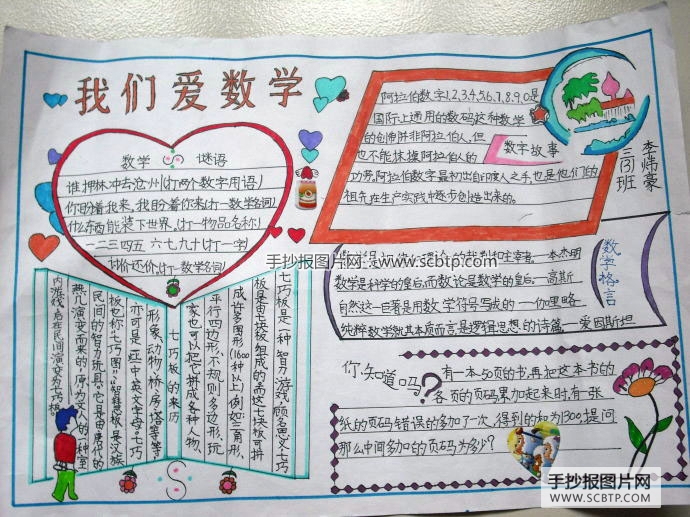 我们爱数学
数学 谜语
谁押林冲去沧州(打两个数字用语)
你盼着我来,我盼着你来(打一数学名词)
什么东西能装下世界,(打一物品名称)
一二三四五 六七九十(打一字)
讨价还价,(打一数学名词)
阿拉伯数字1,2,3,4,5,6,7,8,9,0是
国际上通用的数码这种数学
的创作并非阿拉伯人,但
也不能抹掉阿拉伯人的
功劳,阿拉伯数字最初出自印度人之手,也是他们的
祖先在生产实践中逐步创造出来的。
数学故事
三(3)班
李炜豪
数学格言
本杰明
数学是科学的皇后,而数论是数学的皇后—高斯
自然这一巨著是用数学符号写成的——伽里略
纯粹数学就其本质而言是逻辑思想的诗篇—爱因斯坦
七巧板是一种智力游戏,顾名思义七巧
板是由七块板组成的而这七块板可拼
成许多图形(1600种以上)例如:三角形、
平行四边形、不规则多边形,玩
家也可以把它拼成各种人物、
七巧板的来历
形象、动物、桥、房、塔等等
亦可是一些中、英文字母、七巧
板也称“七巧图”“智慧板”是汉族
民间的智力玩具。它是由唐代的
燕几演变而来的,原为文人的一种室
内游戏,后在民间演变为七巧板
你知道吗?
有一本50页的书,再把这本书的
各页的页码累加起来时,有一张
纸的页码错误的多加了一次,得到的和为1300,提问
那么中间多加的页码为多少?
手抄报图片网_www.scbtp.com
手抄报图片网
WWW.SCBTP.COM